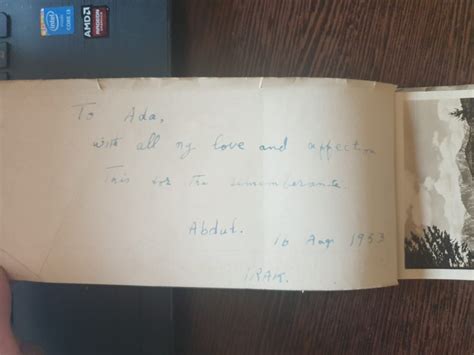 intel
CORE i3
AMD
RADEON
GRAPHICS
To Ada,
with all my love and affection
This for the rememberante.
Abdul. 16 Aug 1953
IRAK.